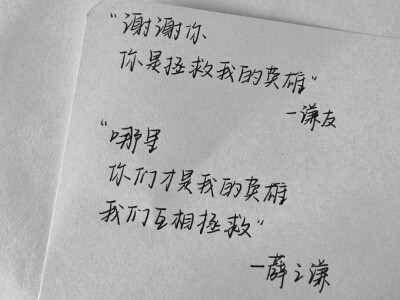 “谢谢你
你是拯救我的英雄”
—谦友
“哪里
你们才是我的英雄
我们互相拯救”
—薛之谦